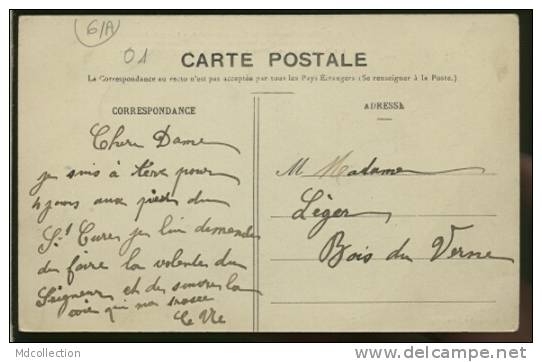 6/A
01
CARTE POSTALE
La Correspondance au recto n'est pas acceptée par tous les Pays Étrangers (Se renseigner à la Poste.)
CORRESPONDANCE
ADRESSE
Chere Dame
je suis à pour
4 jours aux pieds du
St Cure je lui demande
de faire la volonte du
Seigneur et de la
voie qui
M Madame
Léger
Bois du Verne
Mdcollection
www.delcampe.net